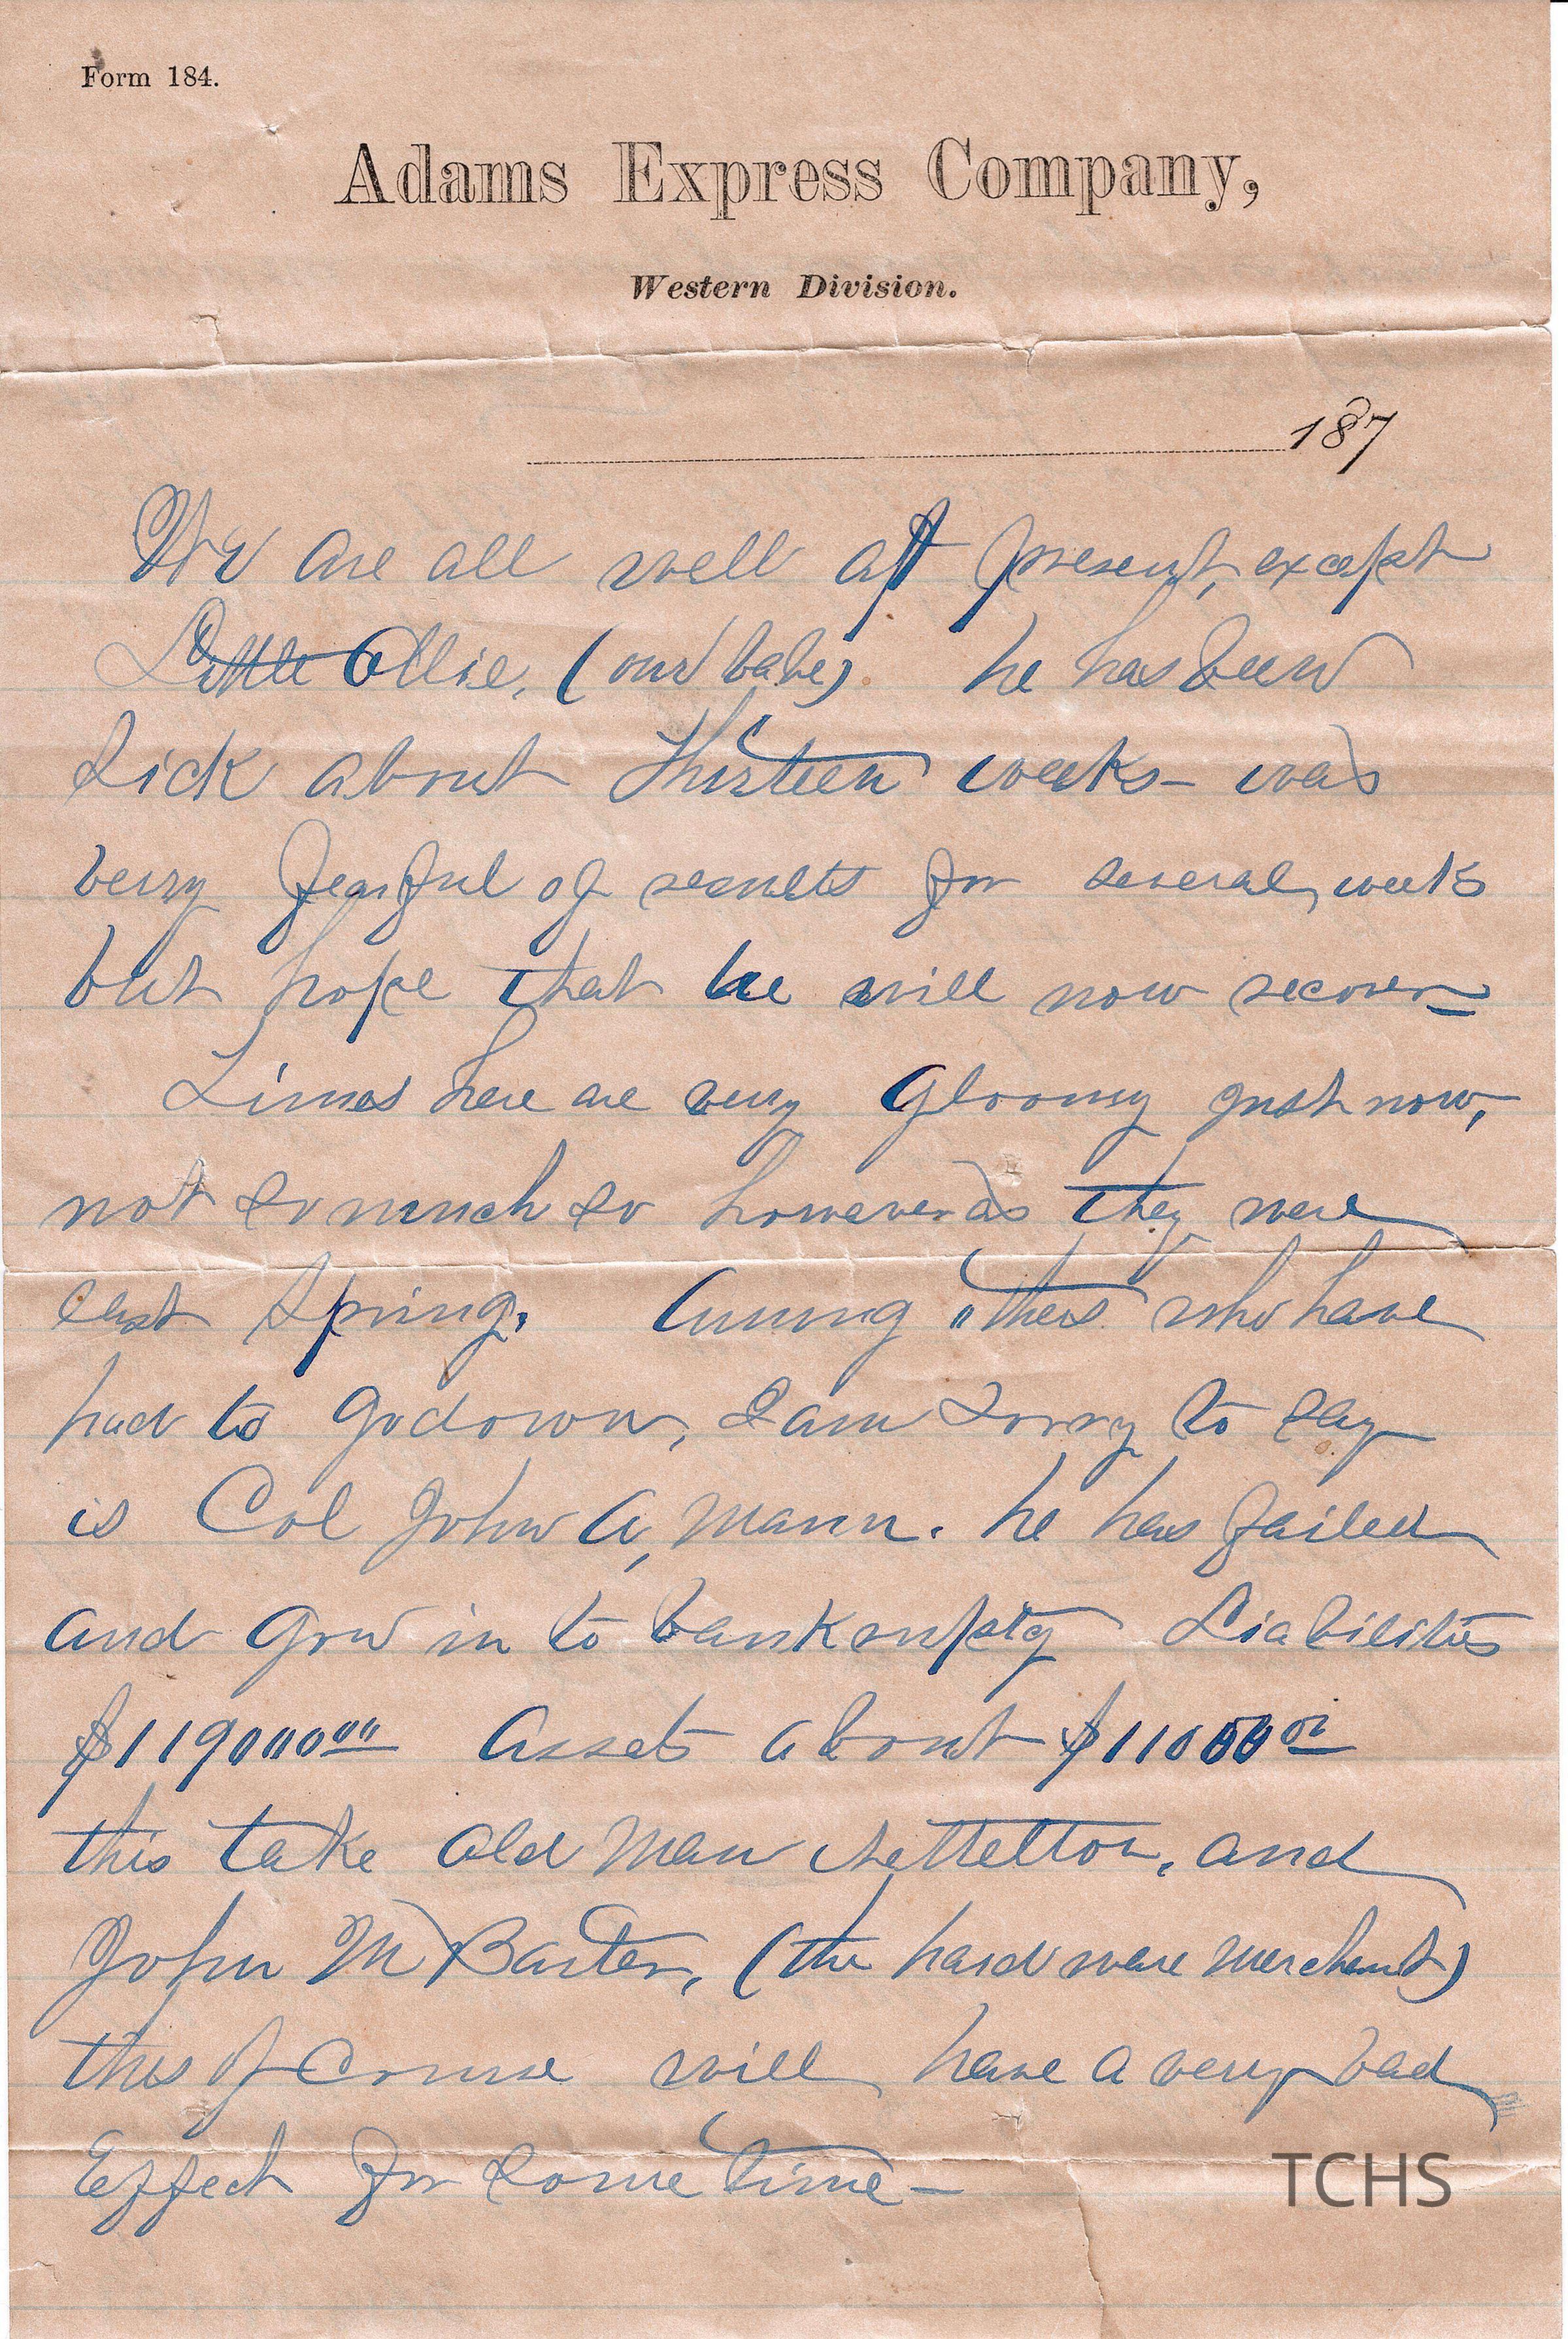 Form 184.
Adams Express Company,
Western Division.
187
We are all well at present, except
Little Ollie, (our babe) he has been
Sick about Thirteen weeks - was
very fearful of results for several, weeks
but hope that he will now recover
Times here are very Gloomy just now,
not so much so however as they were
last Spring. Among others who have
had to go down, I am sorry to say
is Col John A, Mann. he has failed
and gon in to bankruptcy Liabilities
$119000 00 Assets about $11000 00
this take old Man Nettelton, and
John M Baxter, (the hardware Merchant)
this of course will have a very bad
Effect for some time -
TCHS